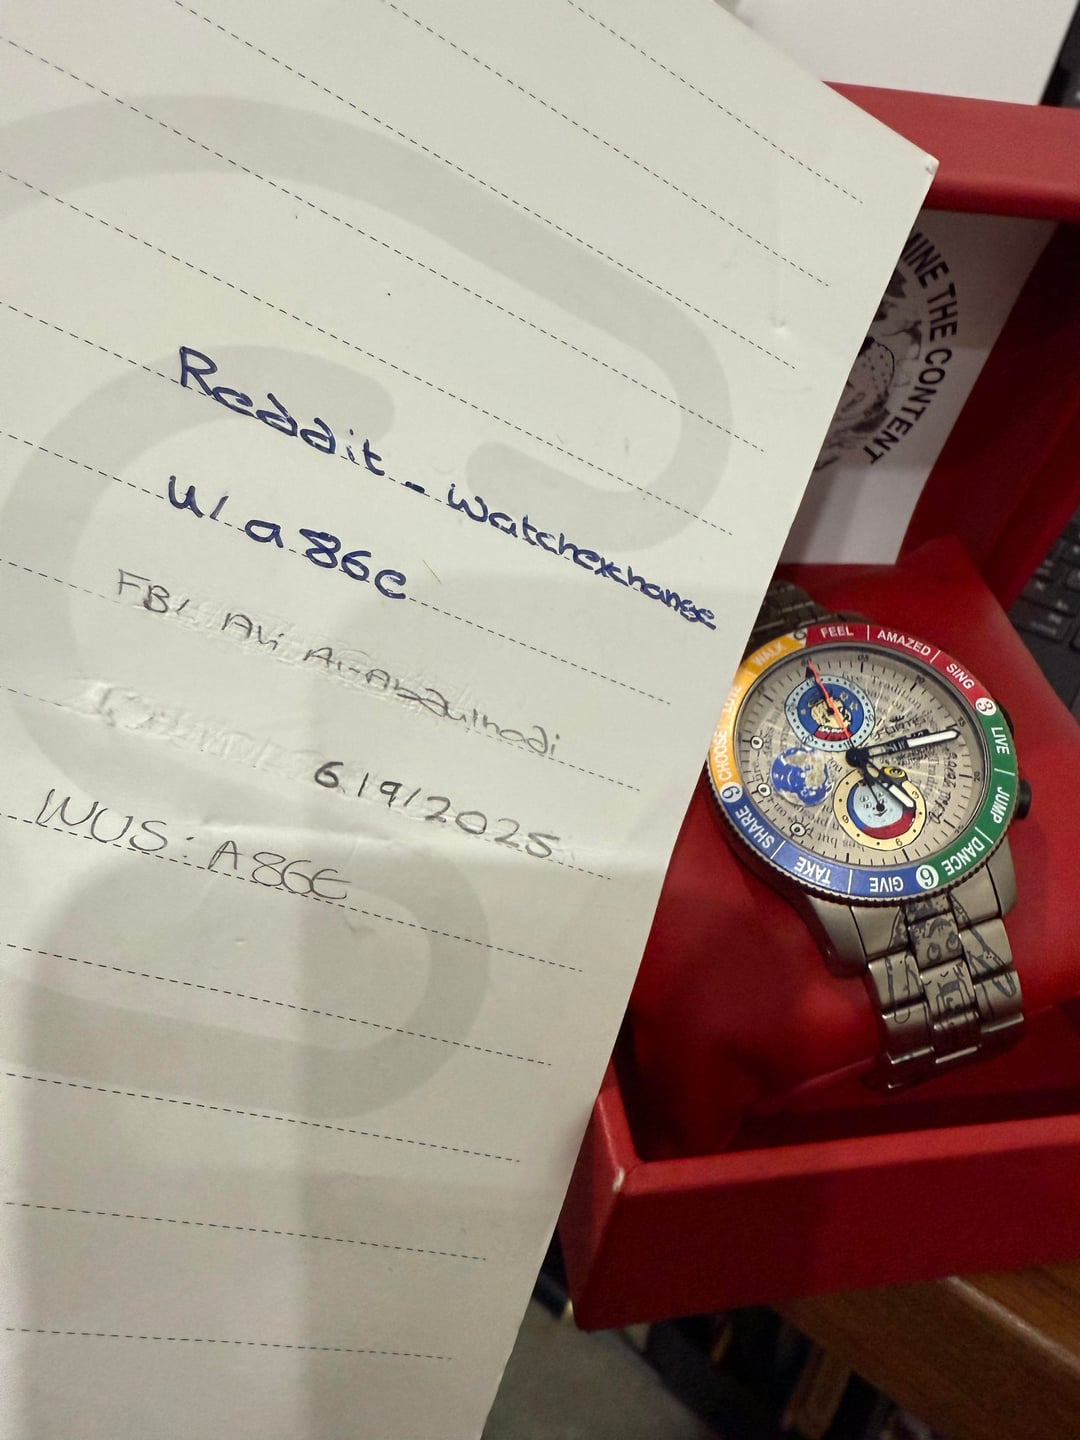 Reddit - watchexchange
u/a86e
FB: Ali Al-Abdulhadi
6/9/2025
WUS: A86E
MINE THE CONTENT
FEEL | AMAZED | SING 3 LIVE | JUMP | DANCE 6 GIVE | TAKE | SHARE 9 CHOOSE | WALK